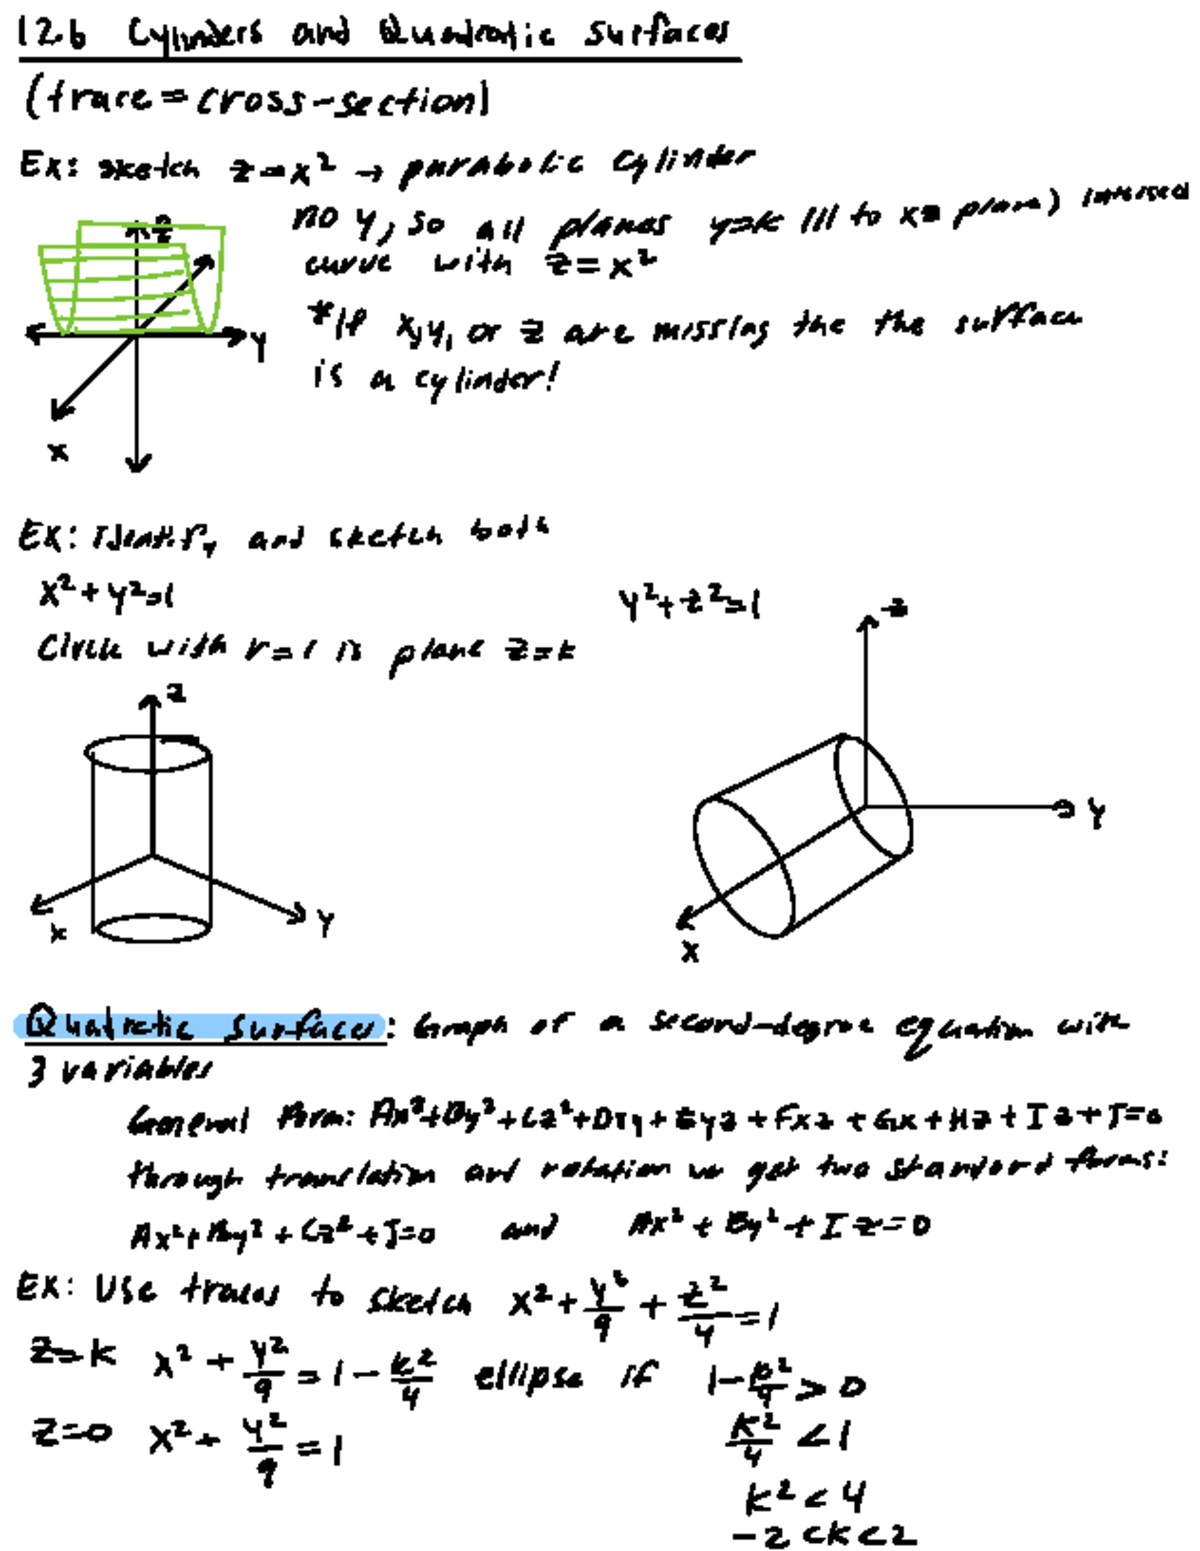 12.6 Cylinders and Quadratic Surfaces
(trace = cross-section)
Ex: sketch z=x² → parabolic cylinder
no y, so all planes y=k (// to xz plane) intersect
curve with z=x²
*if x, y, or z are missing the the surface
is a cylinder!
z
y
x
Ex: Identify and sketch both
x²+y²=1
y²+z²=1
Circle with r=1 is plane z=k
z
x
y
z
y
x
Quadratic Surfaces: Graph of a second-degree equation with
3 variables
General Form: Ax²+By²+Cz²+Dxy+Eyz+Fxz+Gx+Hz+Iz+J=0
through translation and rotation we get two standard forms:
Ax²+By²+Cz²+J=0 and Ax²+By²+Iz=0
Ex: Use traces to sketch x²+y²/9+z²/4=1
z=k x²+y²/9=1-k²/4 ellipse if 1-k²/4>0
z=0 x²+y²/9=1
k²/4<1
k²<4
-2<k<2